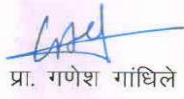 प्रा. गणेश गांधिले